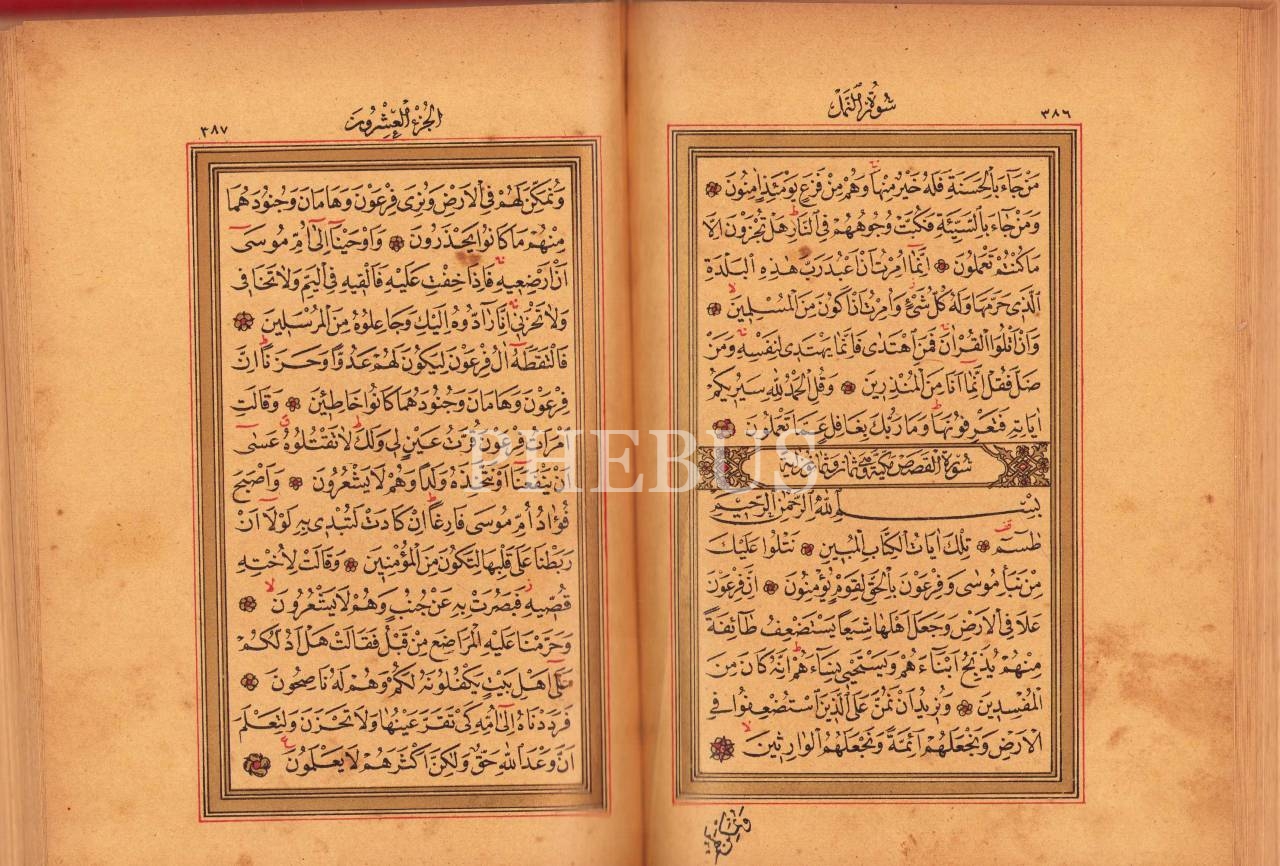 سُورَةُ النَّمْلِ
٣٨٦
مَنْ جَاءَ بِالْحَسَنَةِ فَلَهُ خَيْرٌ مِنْهَا وَهُمْ مِنْ فَزَعٍ يَوْمَئِذٍ اٰمِنُونَ
وَمَنْ جَاءَ بِالسَّيِّئَةِ فَكُبَّتْ وُجُوهُهُمْ فِي النَّارِ هَلْ تُجْزَوْنَ اِلَّا
مَا كُنْتُمْ تَعْمَلُونَ اِنَّمَا اُمِرْتُ اَنْ اَعْبُدَ رَبَّ هٰذِهِ الْبَلْدَةِ
الَّذِي حَرَّمَهَا وَلَهُ كُلُّ شَيْءٍ وَاُمِرْتُ اَنْ اَكُونَ مِنَ الْمُسْلِمِينَ
وَاَنْ اَتْلُوَا الْقُرْاٰنَ فَمَنِ اهْتَدٰى فَاِنَّمَا يَهْتَدِي لِنَفْسِهِ وَمَنْ
ضَلَّ فَقُلْ اِنَّمَا اَنَا مِنَ الْمُنْذِرِينَ وَقُلِ الْحَمْدُ لِلّٰهِ سَيُرِيكُمْ
اٰيَاتِهِ فَتَعْرِفُونَهَا وَمَا رَبُّكَ بِغَافِلٍ عَمَّا تَعْمَلُونَ
سُورَةُ الْقَصَصِ مَكِّيَّةٌ وَهِيَ ثَمَانٌ وَثَمَانُونَ اٰيَةً
بِسْمِ اللّٰهِ الرَّحْمٰنِ الرَّحِيمِ
طٰسٓمٓ تِلْكَ اٰيَاتُ الْكِتَابِ الْمُبِينِ نَتْلُوا عَلَيْكَ
مِنْ نَبَاِ مُوسٰى وَفِرْعَوْنَ بِالْحَقِّ لِقَوْمٍ يُؤْمِنُونَ اِنَّ فِرْعَوْنَ
عَلَا فِي الْاَرْضِ وَجَعَلَ اَهْلَهَا شِيَعًا يَسْتَضْعِفُ طَائِفَةً
مِنْهُمْ يُذَبِّحُ اَبْنَاءَهُمْ وَيَسْتَحْيِي نِسَاءَهُمْ اِنَّهُ كَانَ مِنَ
الْمُفْسِدِينَ وَنُرِيدُ اَنْ نَمُنَّ عَلَى الَّذِينَ اسْتُضْعِفُوا فِي
الْاَرْضِ وَنَجْعَلَهُمْ اَئِمَّةً وَنَجْعَلَهُمُ الْوَارِثِينَ
الْجُزْءُ الْعِشْرُونَ
٣٨٧
وَنُمَكِّنَ لَهُمْ فِي الْاَرْضِ وَنُرِيَ فِرْعَوْنَ وَهَامَانَ وَجُنُودَهُمَا
مِنْهُمْ مَا كَانُوا يَحْذَرُونَ وَاَوْحَيْنَا اِلٰى اُمِّ مُوسٰى
اَنْ اَرْضِعِيهِ فَاِذَا خِفْتِ عَلَيْهِ فَاَلْقِيهِ فِي الْيَمِّ وَلَا تَخَافِي
وَلَا تَحْزَنِي اِنَّا رَادُّوهُ اِلَيْكِ وَجَاعِلُوهُ مِنَ الْمُرْسَلِينَ
فَالْتَقَطَهُ اٰلُ فِرْعَوْنَ لِيَكُونَ لَهُمْ عَدُوًّا وَحَزَنًا اِنَّ
فِرْعَوْنَ وَهَامَانَ وَجُنُودَهُمَا كَانُوا خَاطِئِينَ وَقَالَتِ
امْرَاَتُ فِرْعَوْنَ قُرَّتُ عَيْنٍ لِي وَلَكَ لَا تَقْتُلُوهُ عَسٰى
اَنْ يَنْفَعَنَا اَوْ نَتَّخِذَهُ وَلَدًا وَهُمْ لَا يَشْعُرُونَ وَاَصْبَحَ
فُؤَادُ اُمِّ مُوسٰى فَارِغًا اِنْ كَادَتْ لَتُبْدِي بِهِ لَوْلَا اَنْ
رَبَطْنَا عَلٰى قَلْبِهَا لِتَكُونَ مِنَ الْمُؤْمِنِينَ وَقَالَتْ لِاُخْتِهِ
قُصِّيهِ فَبَصُرَتْ بِهِ عَنْ جُنُبٍ وَهُمْ لَا يَشْعُرُونَ
وَحَرَّمْنَا عَلَيْهِ الْمَرَاضِعَ مِنْ قَبْلُ فَقَالَتْ هَلْ اَدُلُّكُمْ
عَلٰى اَهْلِ بَيْتٍ يَكْفُلُونَهُ لَكُمْ وَهُمْ لَهُ نَاصِحُونَ
فَرَدَدْنَاهُ اِلٰى اُمِّهِ كَيْ تَقَرَّ عَيْنُهَا وَلَا تَحْزَنَ وَلِتَعْلَمَ
اَنَّ وَعْدَ اللّٰهِ حَقٌّ وَلٰكِنَّ اَكْثَرَهُمْ لَا يَعْلَمُونَ
PHEBUS